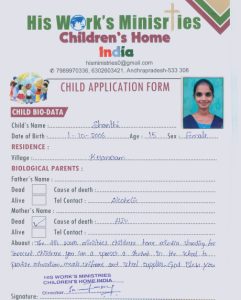 His Work's Minisrties
Children's Home
India
hisministries0@gmail.com
7989970336, 6302603421, Andhrapradesh-533 306
CHILD APPLICATION FORM
CHILD BIO-DATA
Child's Name : Shanthi
Date of Birth : 1-10-2006 Age : 15 Sex : Female
RESIDENCE :
Village :
BIOLOGICAL PARENTS :
Father's Name :
Dead Cause of death :
Alive Tel Contact : Alcoholic
Mother's Name :
Dead Cause of death : HIV
Alive Tel Contact :
About : The His work ministries childrens home
children you can a sponsor a student in the school to
school supplies God Bless you
HIS WORK'S MINISTRIES
CHILDREN'S HOME INDIA
Director
Signature: